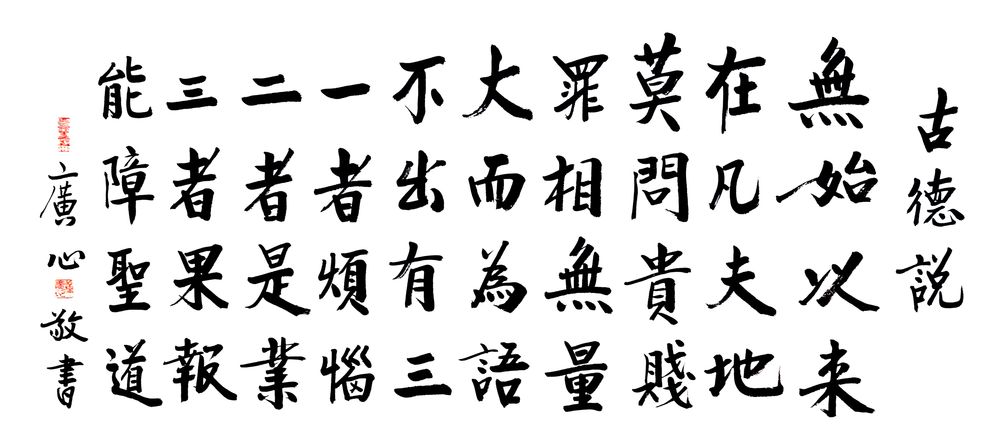 古德説
無始以来
在凡夫地
莫問貴賤
罪相無量
大而為語
不出有三
一者煩惱
二者是業
三者果報
能障聖道
上廣心敬書